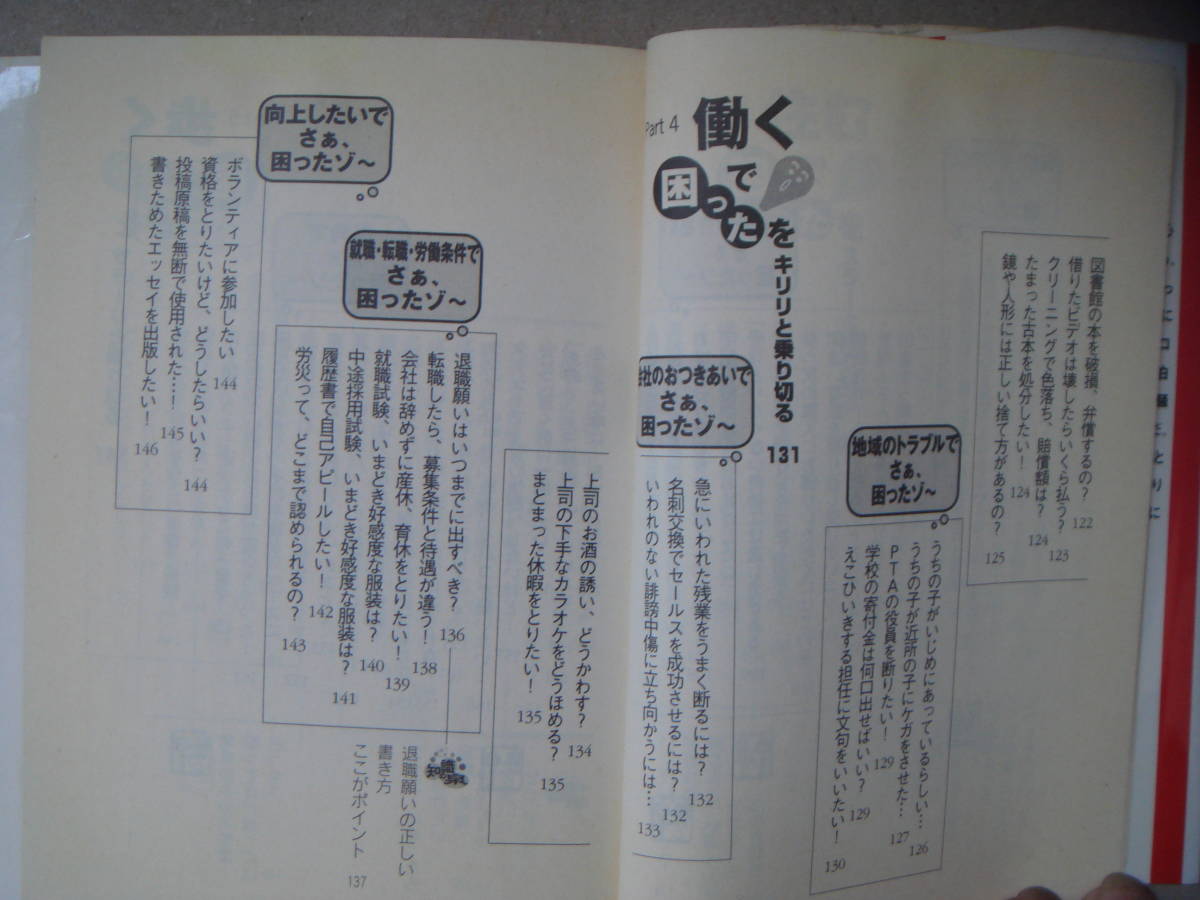 図書館の本を破損、弁償するの? 122
借りたビデオは壊したらいくら払う? 123
クリーニングで色落ち、賠償額は? 124
たまった古本を処分したい! 124
鏡や人形には正しい捨て方があるの? 125
地域のトラブルで
さぁ、
困ったゾ〜
うちの子がいじめにあっているらしい… 126
うちの子が近所の子にケガをさせた… 127
PTAの役員を断りたい! 129
学校の寄付金は何口出せばいい? 129
えこひいきする担任に文句をいいたい! 130
Part 4
働く
で
困った
を
キリリと乗り切る 131
会社のおつきあいで
さぁ、
困ったゾ〜
急にいわれた残業をうまく断るには? 132
名刺交換でセールスを成功させるには? 132
いわれのない誹謗中傷に立ち向かうには… 133
上司のお酒の誘い、どうかわす? 134
上司の下手なカラオケをどうほめる? 135
まとまった休暇をとりたい! 135
就職・転職・労働条件で
さぁ、
困ったゾ〜
退職願いはいつまでに出すべき? 136
転職したら、募集条件と待遇が違う! 138
会社は辞めずに産休、育休をとりたい! 139
就職試験、いまどき好感度な服装は? 140
中途採用試験、いまどき好感度な服装は? 141
履歴書で自己アピールしたい! 142
労災って、どこまで認められるの? 143
退職願いの正しい
書き方
ここがポイント 137
向上したいで
さぁ、
困ったゾ〜
ボランティアに参加したい 144
資格をとりたいけど、どうしたらいい? 144
投稿原稿を無断で使用された…! 145
書きためたエッセイを出版したい! 146